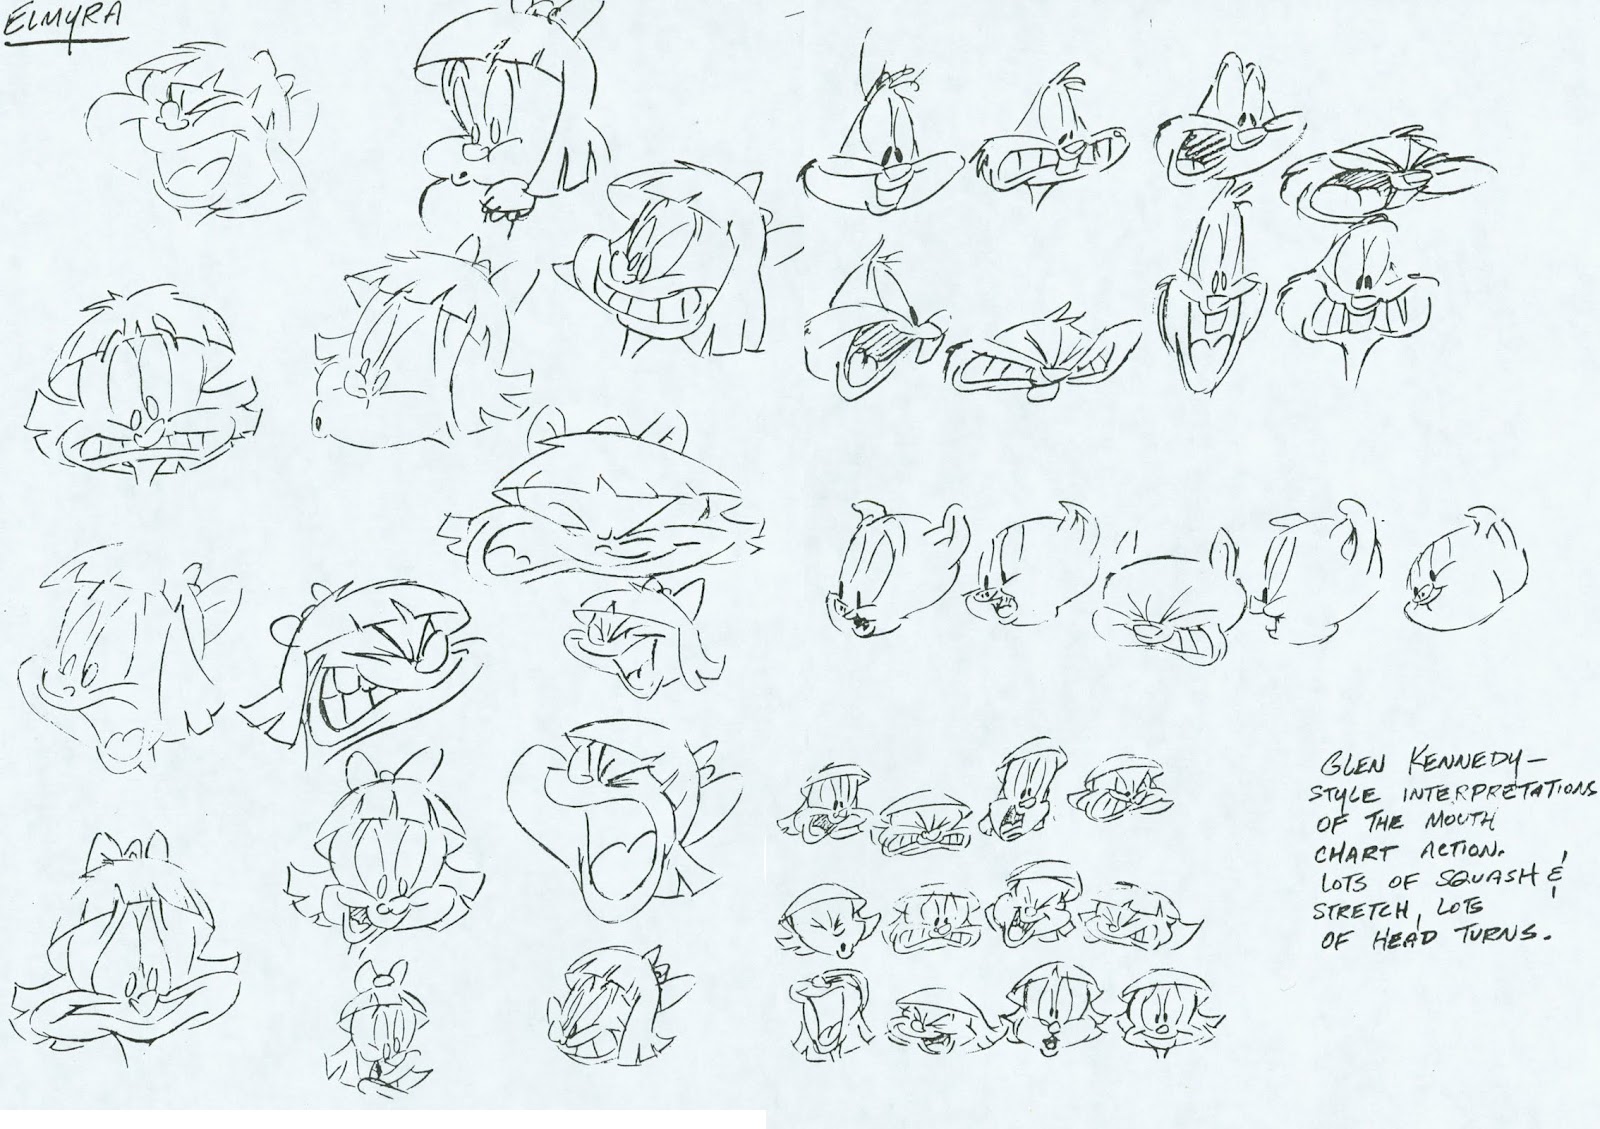 ELMYRA
GLEN KENNEDY—
STYLE INTERPRETATIONS
OF THE MOUTH
CHART ACTION.
LOTS OF SQUASH &
STRETCH, LOTS
OF HEAD TURNS.